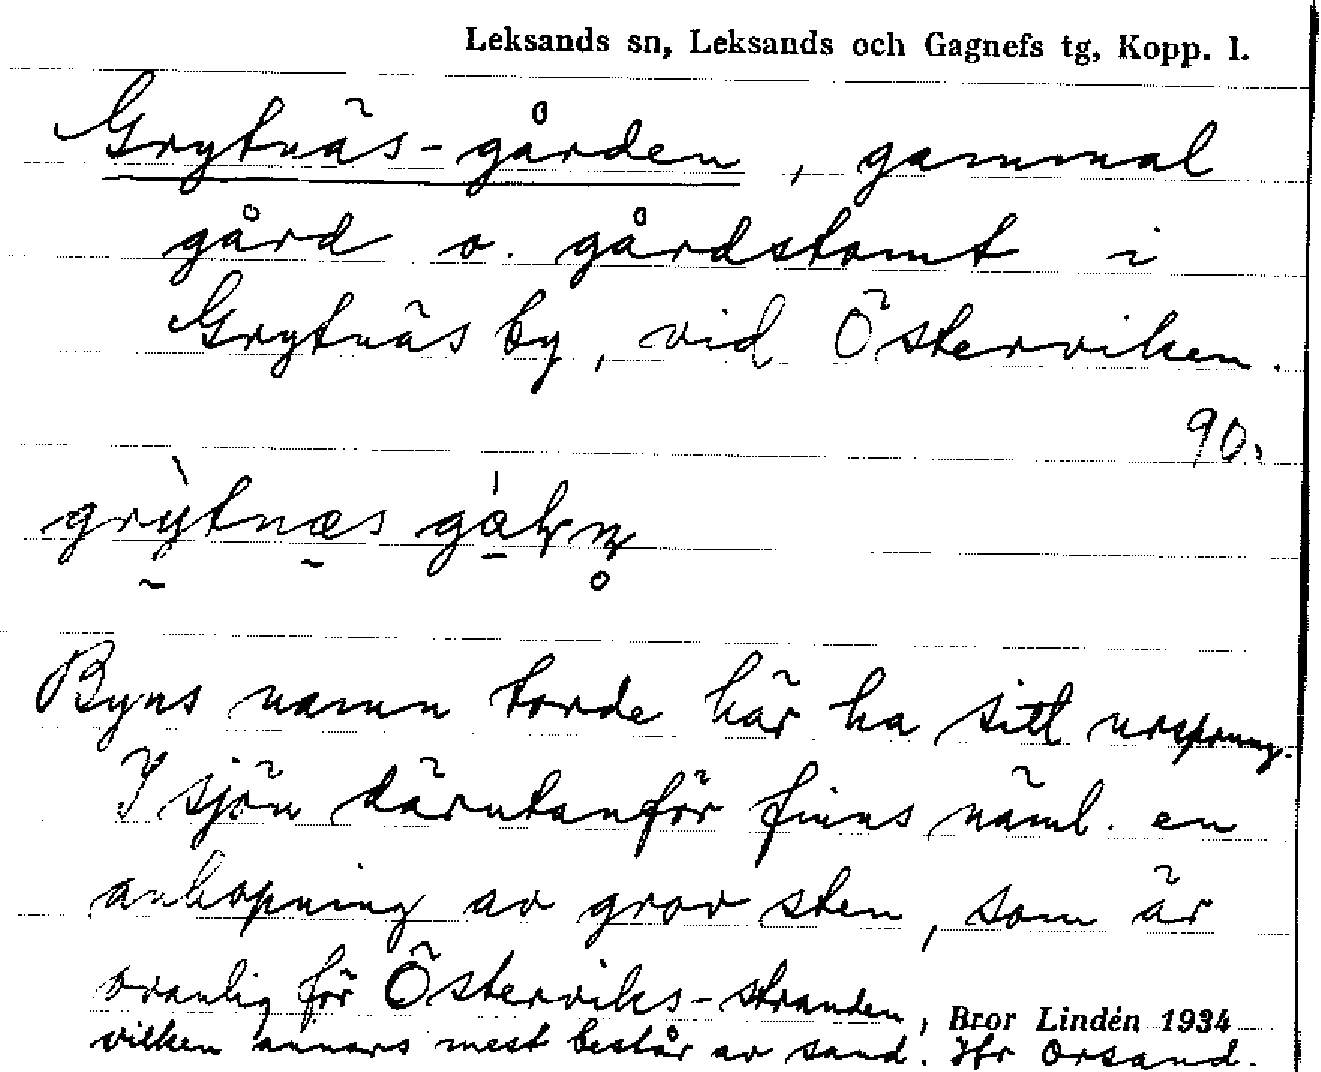 Leksands sn, Leksands och Gagnefs tg, Kopp. l.
Grytnäs-gården, gammal
gård o. gårdstomt i
Grytnäs by, vid Österviken.
90.
grỳtnæs
Byns namn torde här ha sitt ursprung.
I sjön därutanför finns näml. en
anhopning av grov sten, som är
ovanlig för Österviks-stranden,
Bror Lindén 1934
vilken annars mest består av sand. Jfr Orsand.